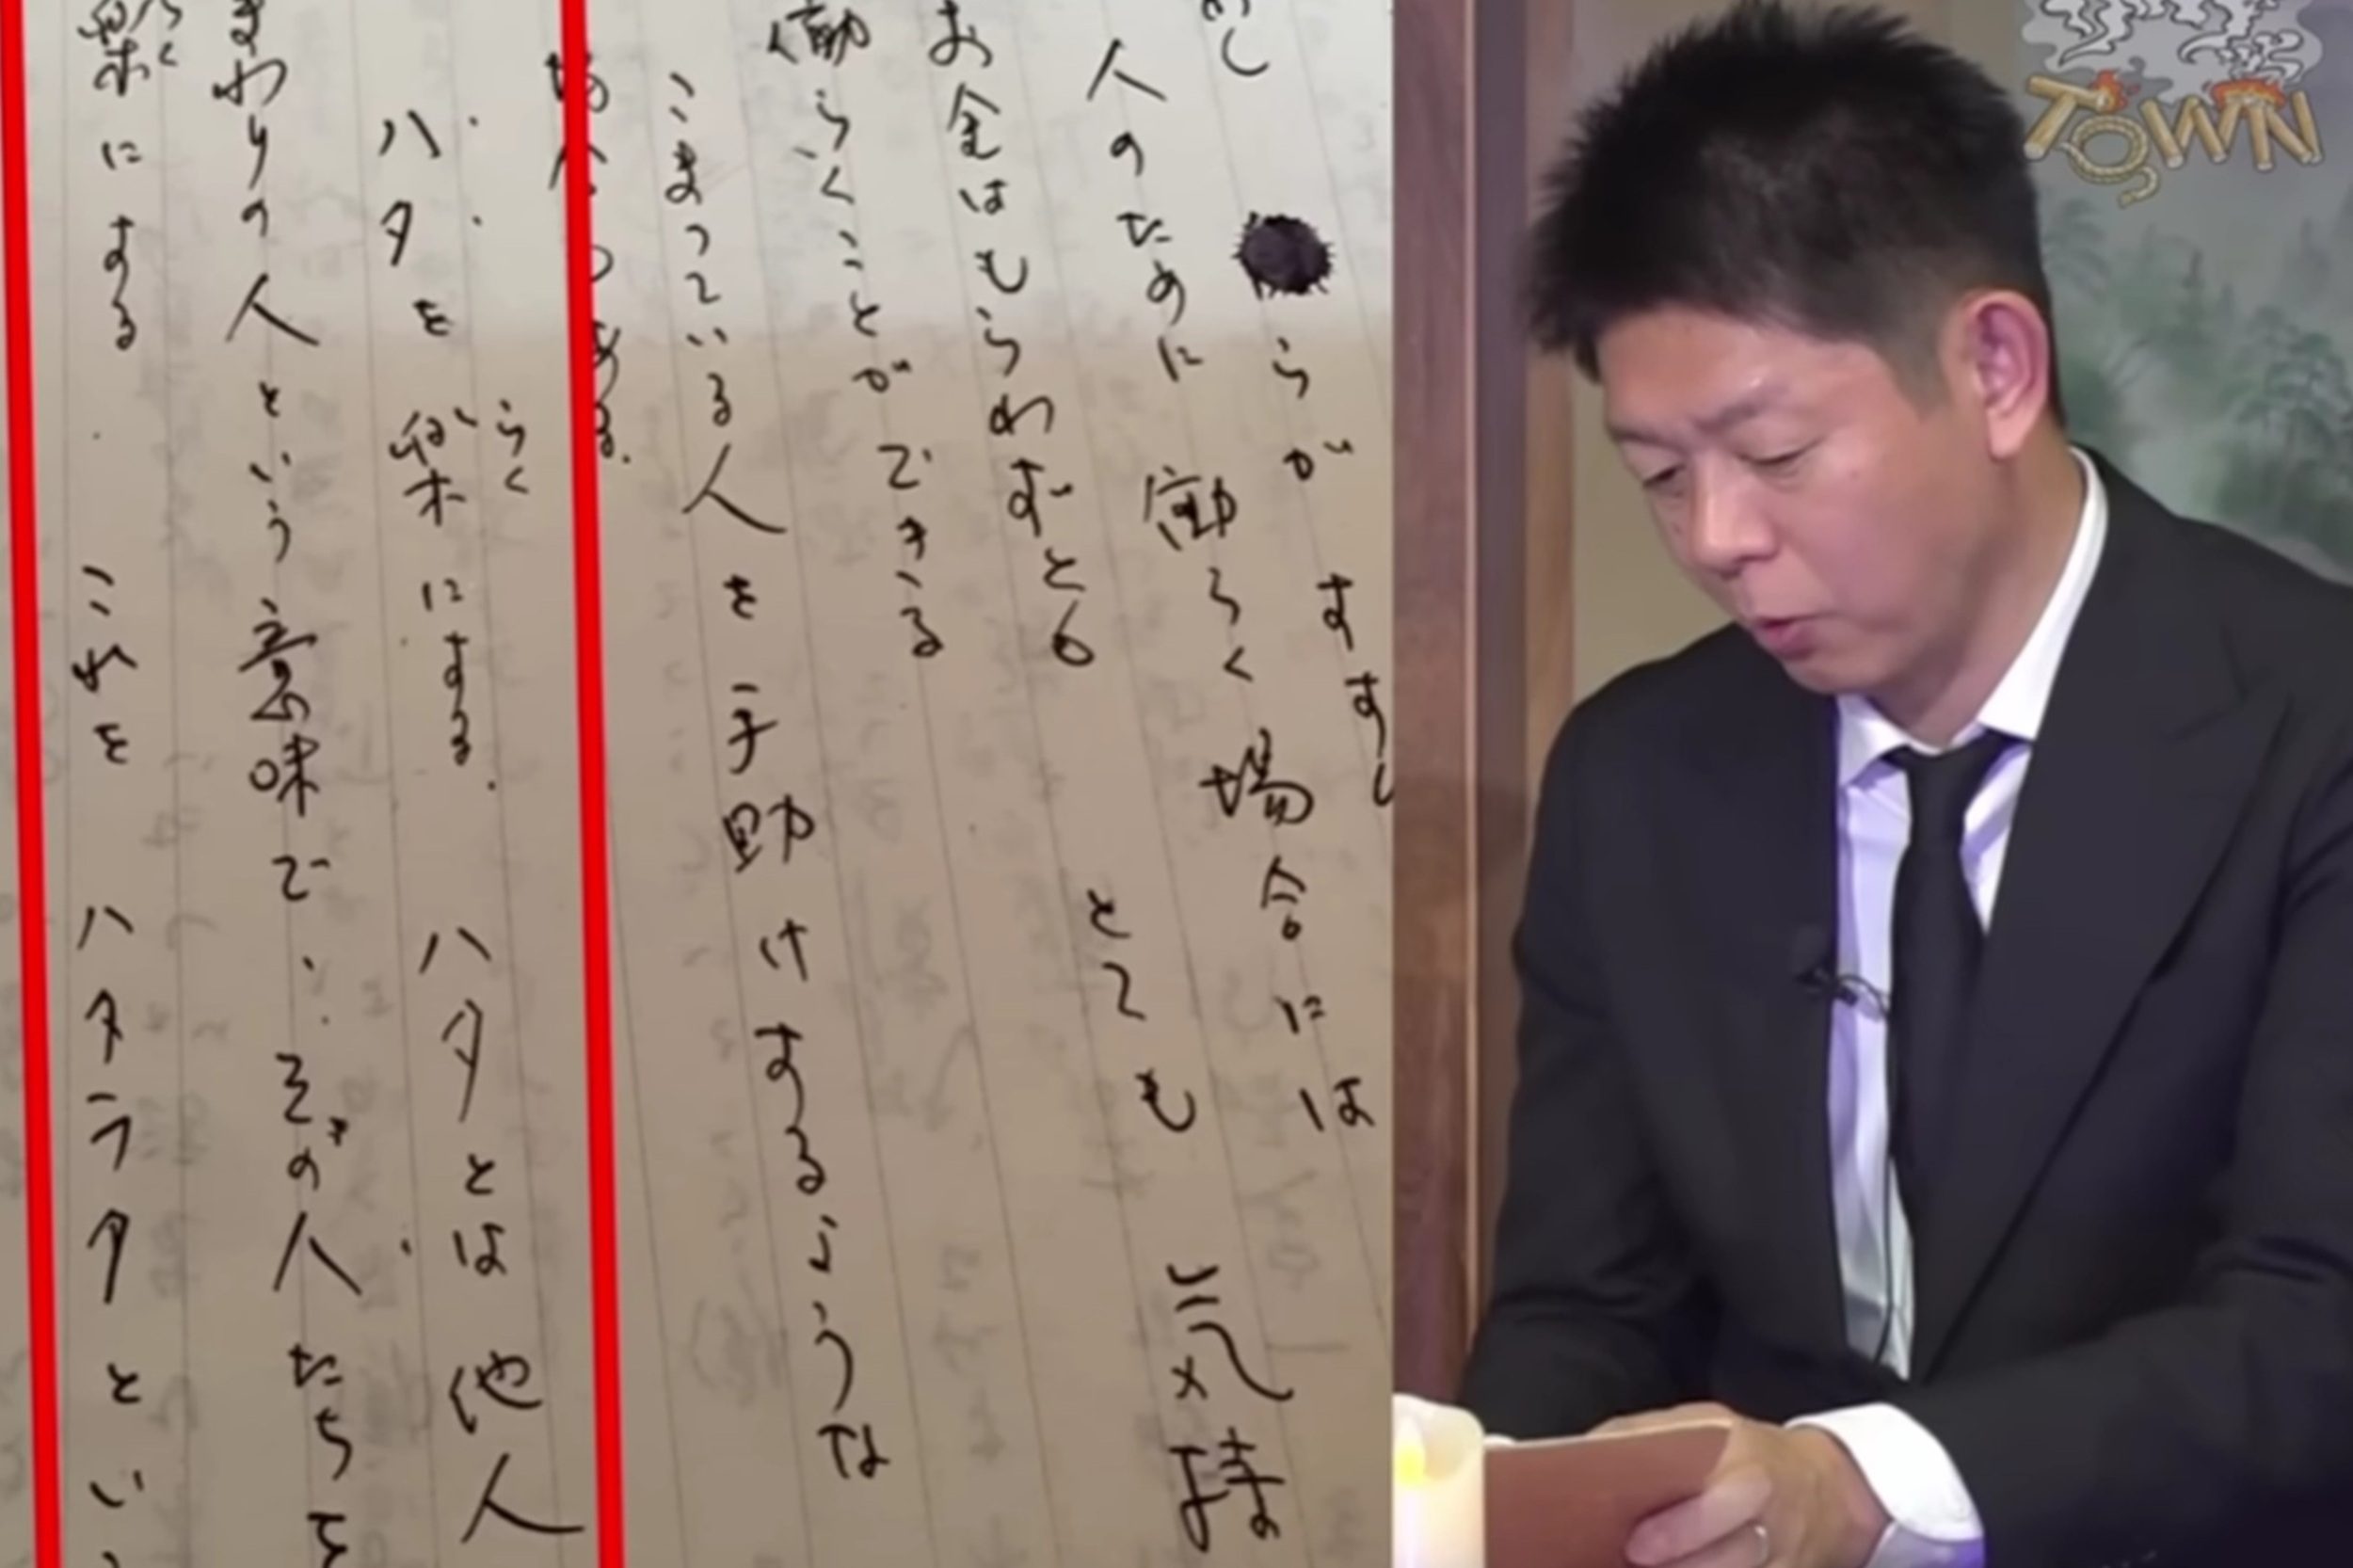 らが すすし
人のために 働らく 場合には
お金はもらわずとも とても 気持
働らくことができる
こまっている人を手助けするような
ある.
ハタを楽にする. ハタとは他人
らく
まわりの人という意味で、その人たちを
楽にする これを ハタラクとい
TOWN